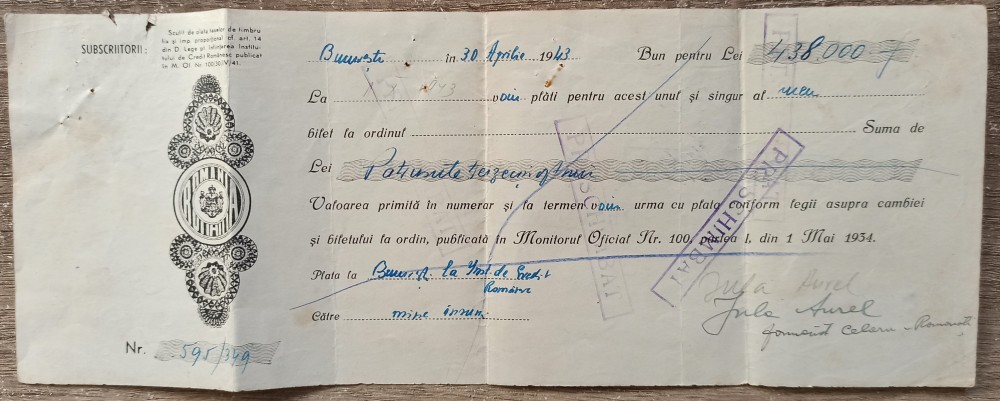 Scutit de plata taxelor de timbru
fix și imp. proporțional cf. art. 14
din D. Lege pt. înființarea Institu-
tului de Credit Românesc publicat
în M. Of. Nr. 100/30/V/41.
SUBSCRIITORII:
București în 30 Aprilie 1943 Bun pentru Lei 438.000
La X X 1943 voiu plăti pentru acest unul și singur al meu
bilet la ordinul Suma de
Lei Patru sute treizeci și opt mii
Valoarea primită în numerar și la termen voiu urma cu plata conform legii asupra cambiei
și biletului la ordin, publicată în Monitorul Oficial Nr. 100, partea I, din 1 Mai 1934.
Plata la București la Inst. de Credit
Românesc
Către mine însumi
ROMÂNIA
Nr. 595/349
PRESCHIMBAT
PRESCHIMBAT
Jula Aurel
Jula Aurel